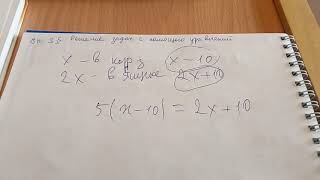 Решение задач с помощью уравнений
x – в кор з x – 10
2x – в ящике 2x + 10
5(x – 10) = 2x + 10